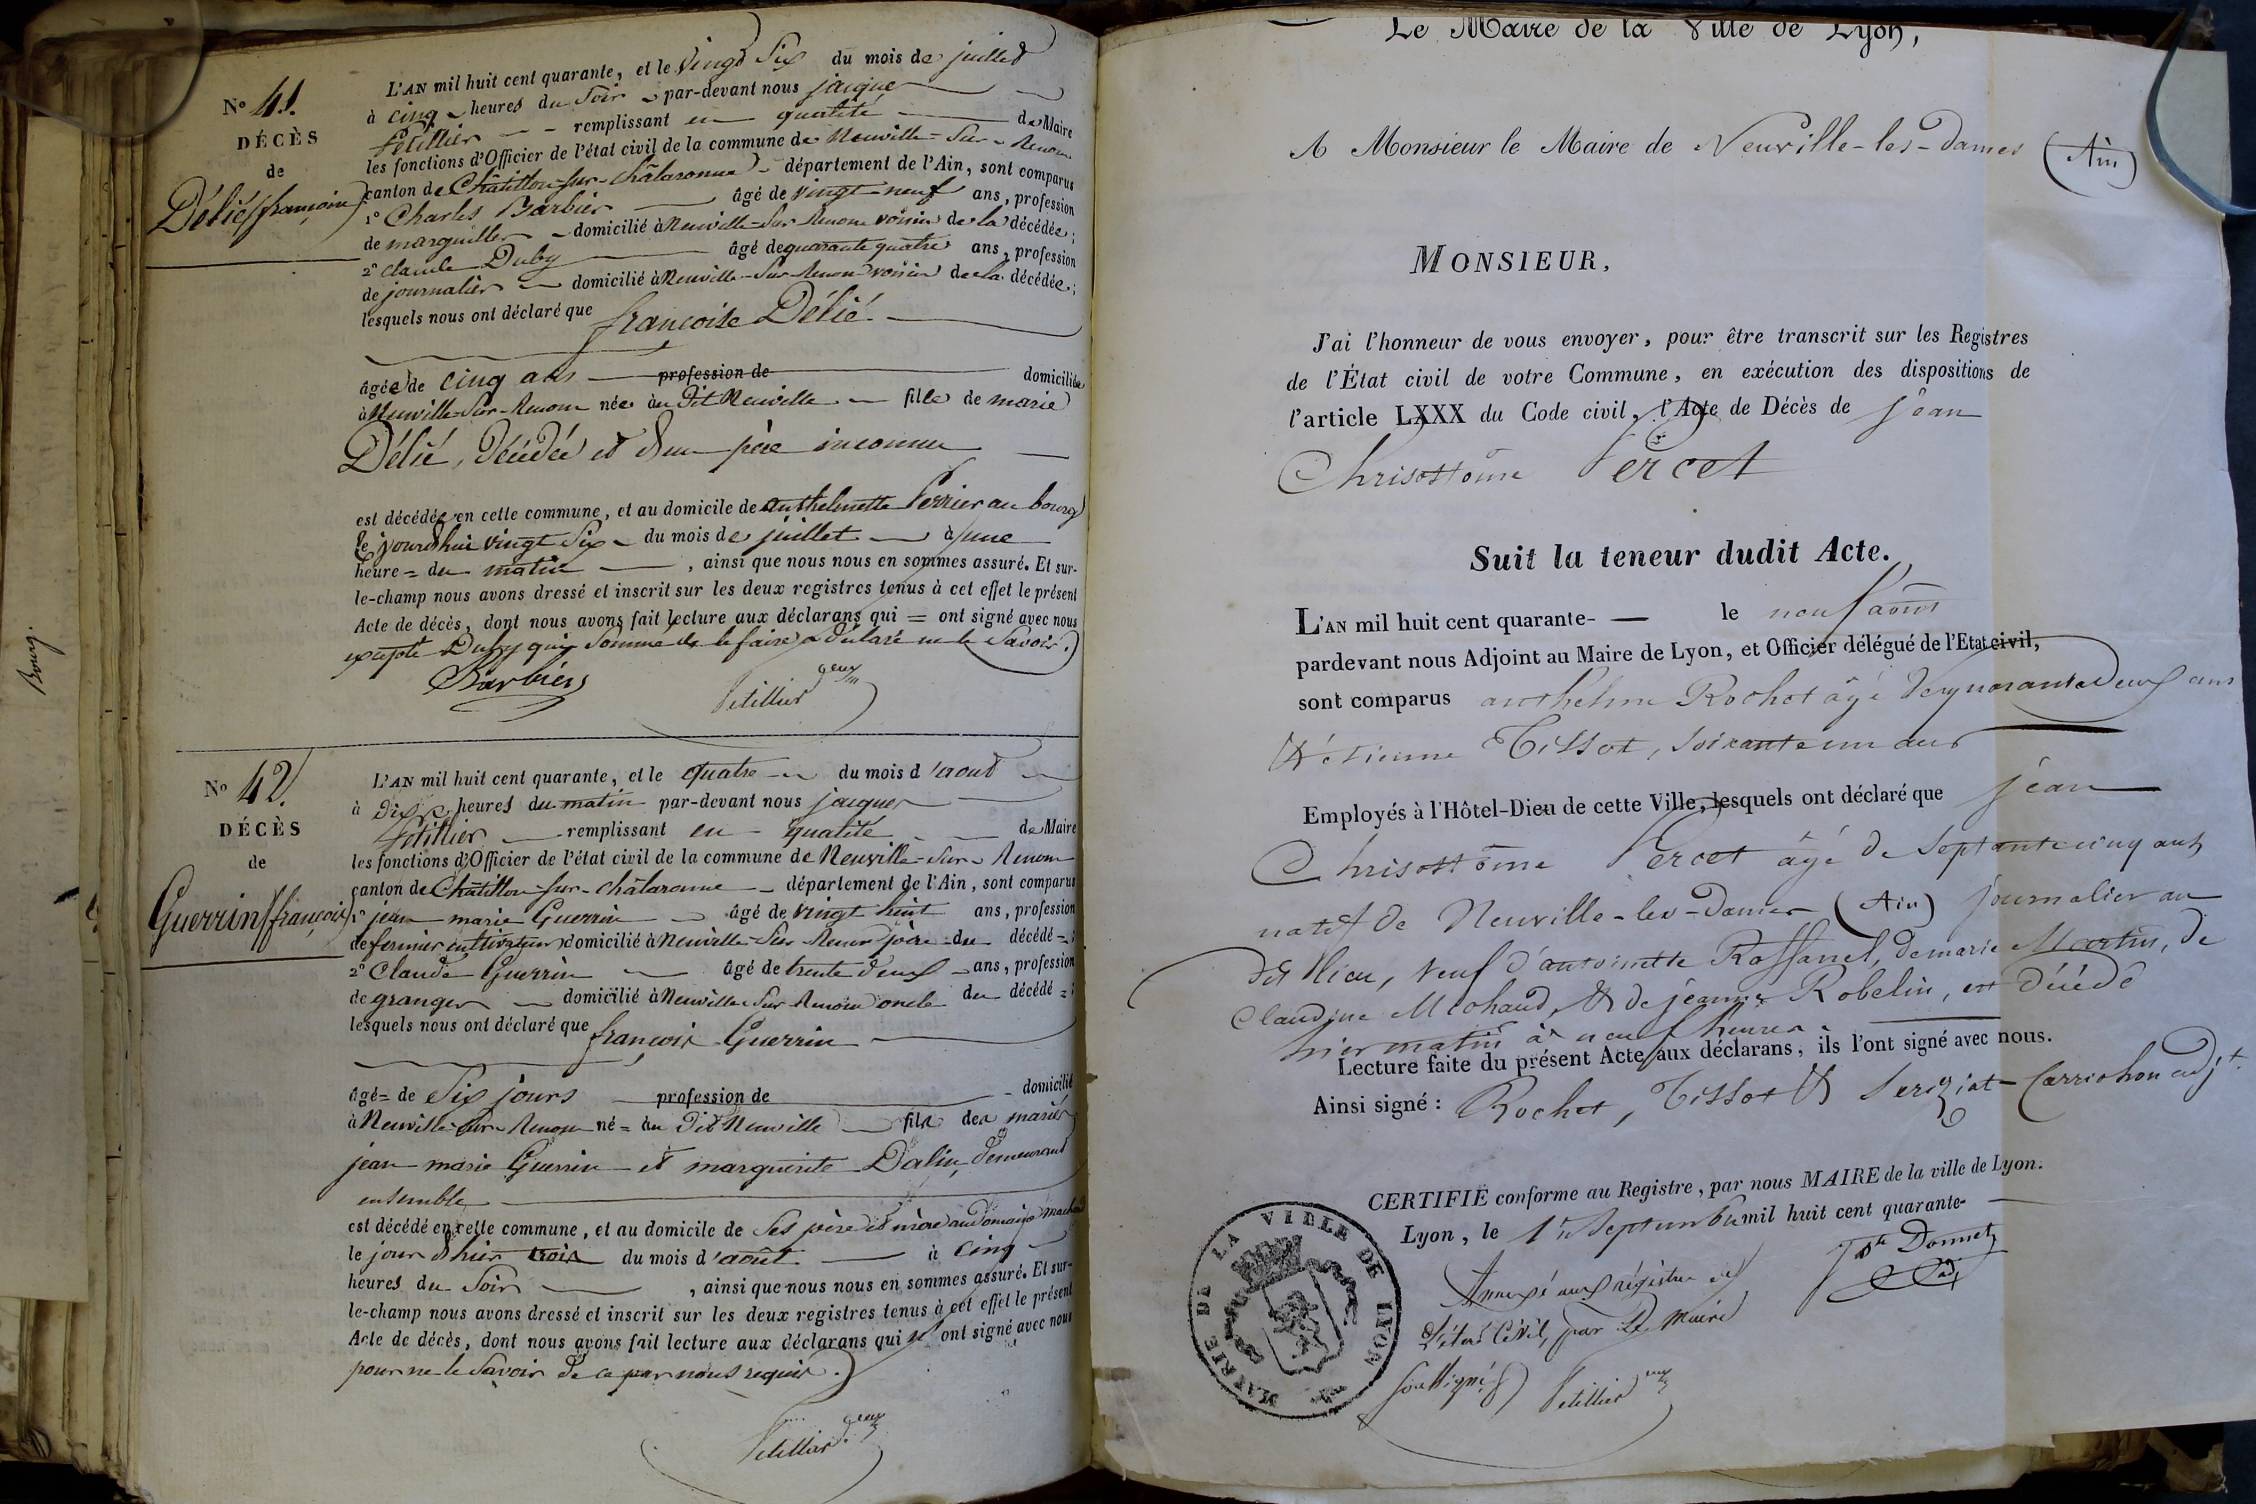 Bourg.
N° 41.
DÉCÈS
de
Délié (françoise)
L'AN mil huit cent quarante, et le vingt Six du mois de juillet
à cinq heures du Soir par-devant nous jacques
Petillier remplissant en qualité de Maire
les fonctions d'Officier de l'état civil de la commune de Neuville-Sur-Renom
canton de Châtillon-sur-châlaronne département de l'Ain, sont comparus
1° Charles Barbier âgé de vingt-neuf ans, profession
de marguiller domicilié à Neuville-Sur Renom voisin de la décédée;
2° claude Duby âgé de quarante quatre ans, profession
de journalier domicilié à Neuville-Sur Renom voisin de la décédée;
lesquels nous ont déclaré que françoise Délié.
âgée de cinq ans profession de domiciliée
à Neuville-Sur-Renom née au dit Neuville fille de marie
Délié, décédée et d'un père inconnu
est décédée en cette commune, et au domicile de anthelmette Perrier au bourg
le jourd'hui vingt Six du mois de juillet à une
heure = du matin , ainsi que nous nous en sommes assuré. Et sur-
le-champ nous avons dressé et inscrit sur les deux registres tenus à cet effet le présent
Acte de décès, dont nous avons fait lecture aux déclarans qui = ont signé avec nous
excepté Duby qui Sommé de le faire a déclaré ne le Savoir.
Barbier
Petillier
N° 42.
DÉCÈS
de
Guerrin (françois)
L'AN mil huit cent quarante, et le quatre du mois d'aout
à Dix heures du matin par-devant nous jacques
Petillier remplissant en qualité de Maire
les fonctions d'Officier de l'état civil de la commune de Neuville-Sur-Renom
canton de Châtillon-sur-châlaronne département de l'Ain, sont comparus
1° jean marie Guerrin âgé de vingt huit ans, profession
de fermier cultivateur domicilié à Neuville-Sur Renom père du décédé =;
2° Claude Guerrin âgé de trente deux ans, profession
de granger domicilié à Neuville-Sur Renom oncle du décédé =;
lesquels nous ont déclaré que françois Guerrin
âgé = de Six jours profession de domicilié
à Neuville-Sur-Renom né = au dit Neuville fils des mariés
jean marie Guerrin et marguerite Dalin, demeurant
ensemble
est décédé en cette commune, et au domicile de Ses père et mère au Domaine
le jour d'hier trois du mois d'août à cinq
heures du Soir , ainsi que nous nous en sommes assuré. Et sur-
le-champ nous avons dressé et inscrit sur les deux registres tenus à cet effet le présent
Acte de décès, dont nous avons fait lecture aux déclarans qui n' ont signé avec nous
pour ne le Savoir de ce par nous requis.
Petillier
Le Maire de la Ville de Lyon,
A Monsieur le Maire de Neuville-les-Dames (Ain)
MONSIEUR,
J'ai l'honneur de vous envoyer, pour être transcrit sur les Registres
de l'État civil de votre Commune, en exécution des dispositions de
l'article LXXX du Code civil, l'Acte de Décès de jean
Chrisostôme Percet
Suit la teneur dudit Acte.
L'AN mil huit cent quarante- le neuf août
pardevant nous Adjoint au Maire de Lyon, et Officier délégué de l'Etat civil,
sont comparus anthelme Rochet âgé de quarante deux ans
& étienne Tissot, soixante un ans
Employés à l'Hôtel-Dieu de cette Ville, lesquels ont déclaré que jean
Chrisostôme Percet âgé de septante cinq ans
natif de Neuville-les-Dames (Ain) journalier au
dit lieu, veuf d'antoinette Rassanel, de marie Martin, de
Claudine Michaud, & de jeanne Robelin, est décédé
hier matin à neuf heures.
Lecture faite du présent Acte aux déclarans, ils l'ont signé avec nous.
Ainsi signé: Rochet, Tissot & Seriziat Carrichon adjt.
CERTIFIÉ conforme au Registre, par nous MAIRE de la ville de Lyon.
Lyon, le 1er septembre mil huit cent quarante-
Donnet
Annexé aux régistres de
l'état Civil, par le Maire
Soussigné
Petillier
MAIRIE DE LA VILLE DE LYON